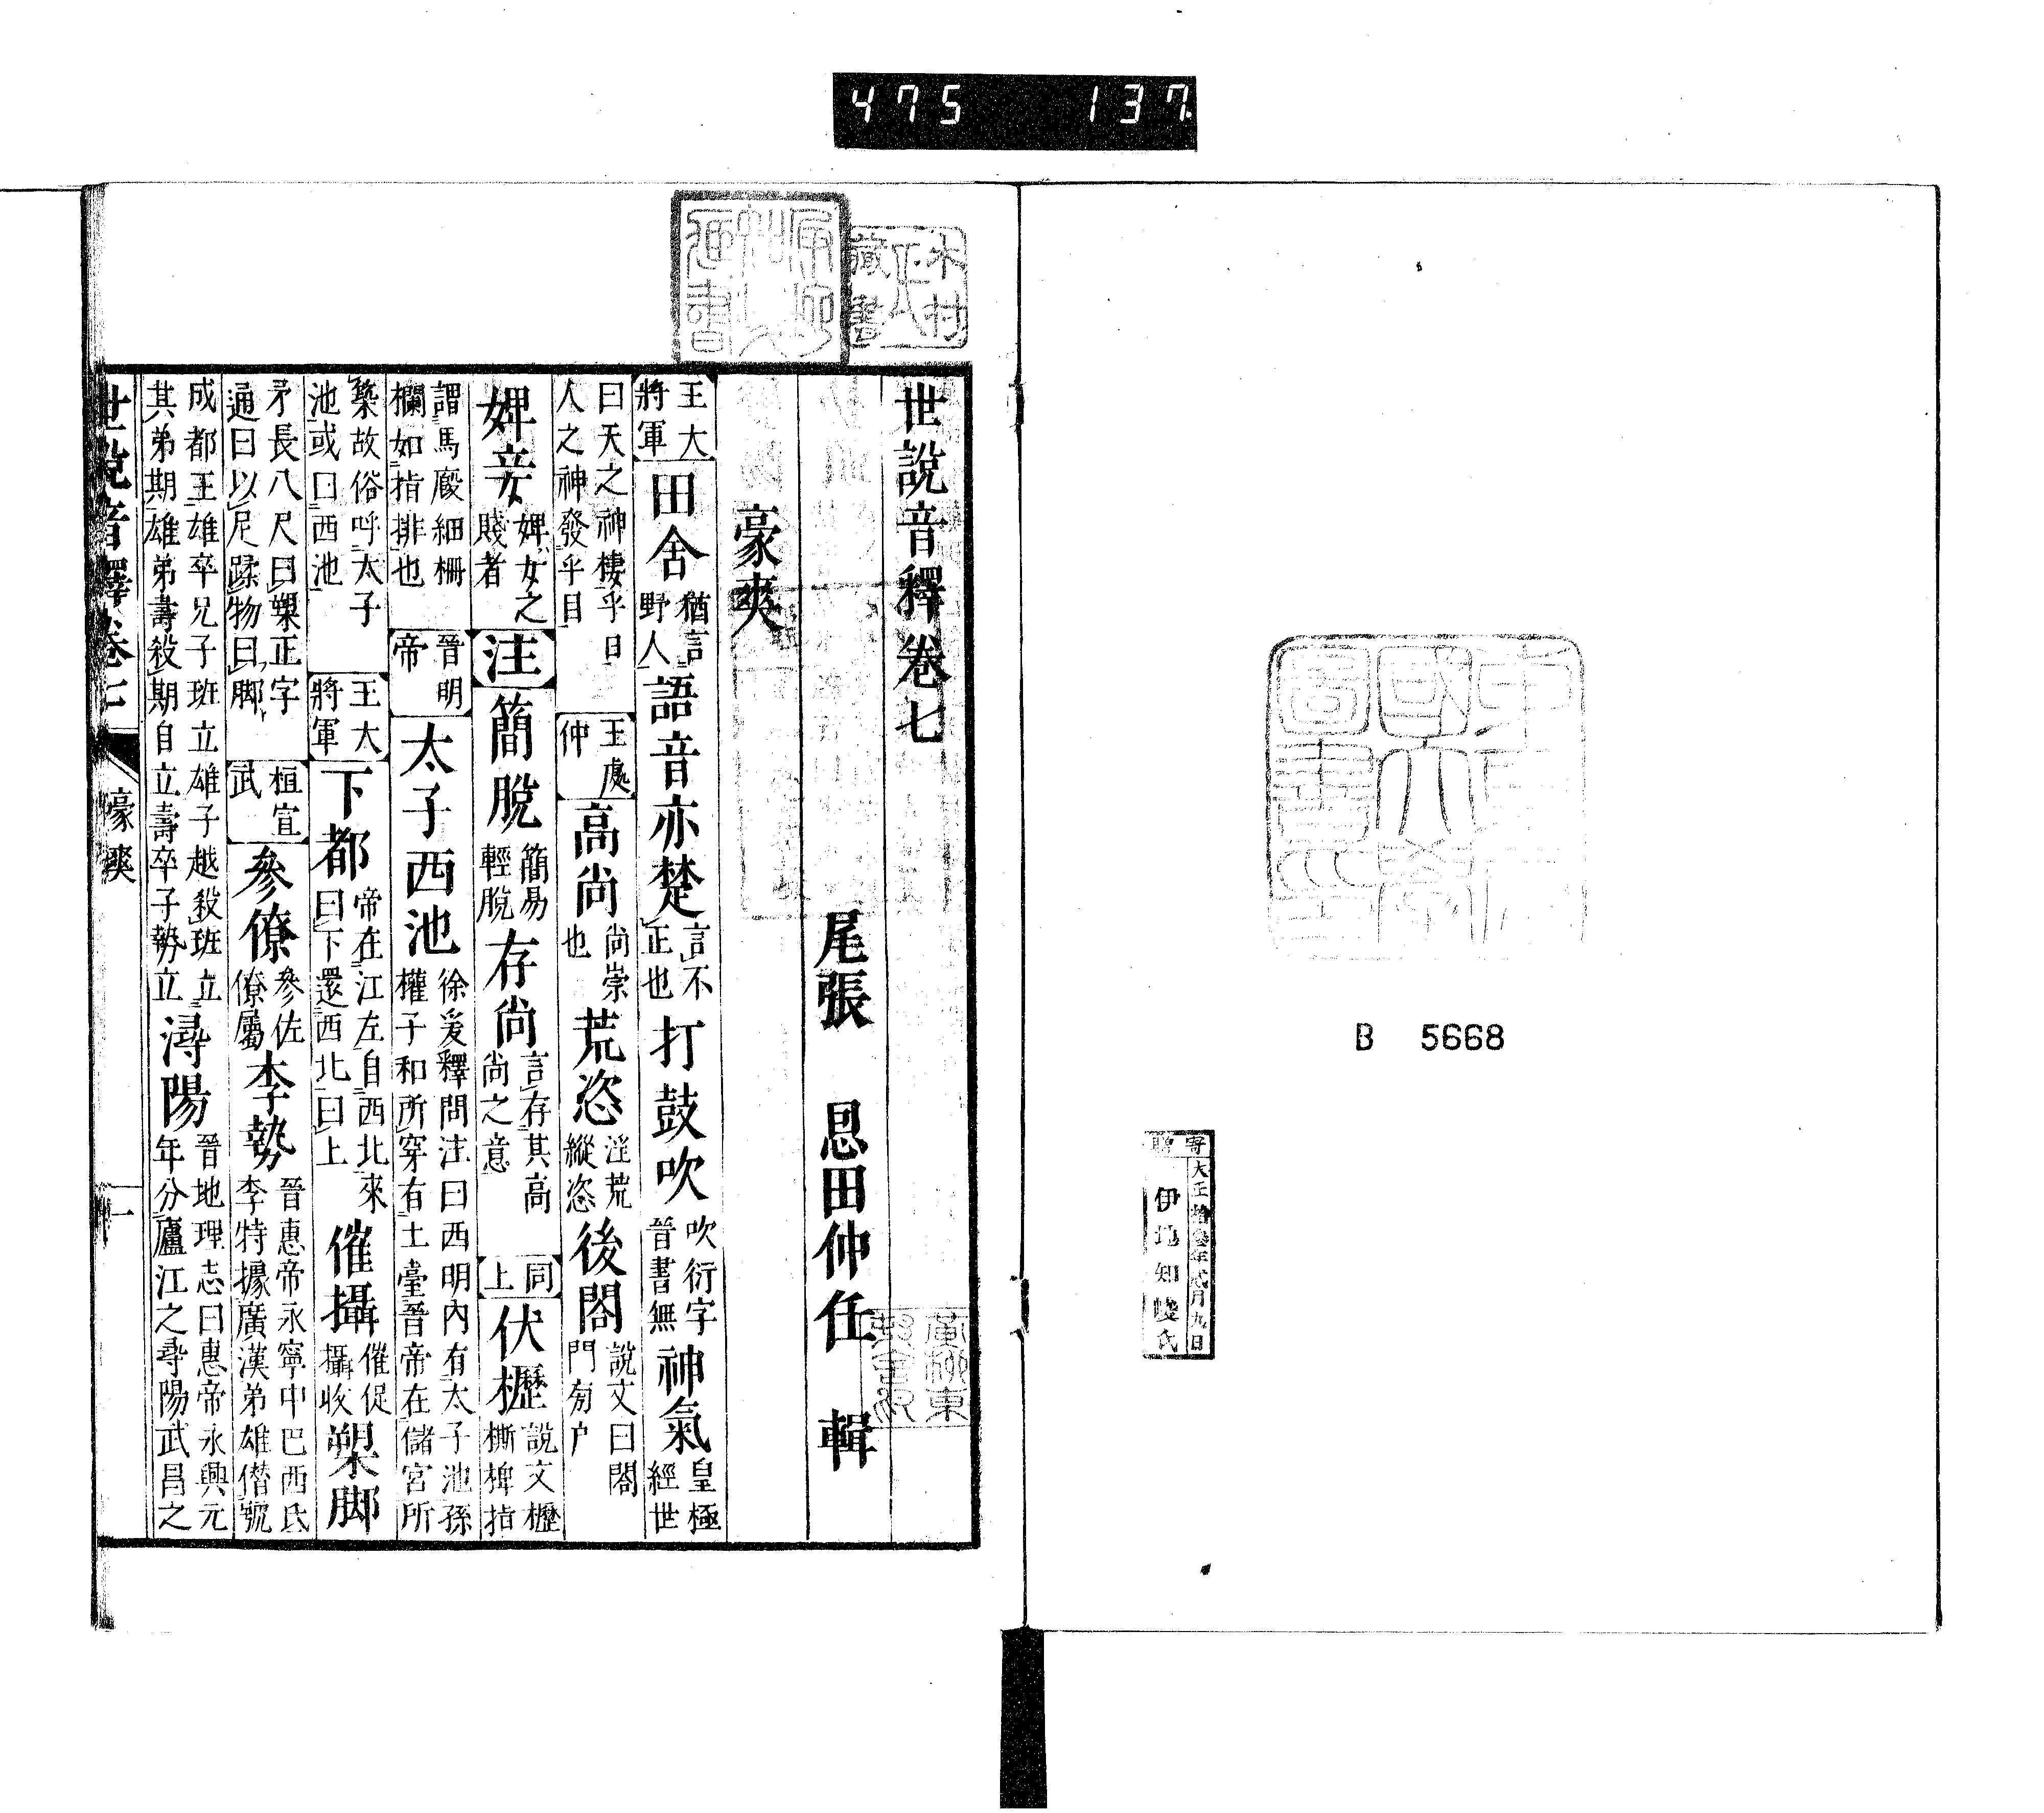 475 137
B 5668
寄贈
大正拾叁年弐月九日
伊地知峻氏
木村氏藏書
世說音釋卷七
尾張 恩田仲任 輯
豪爽
王大將軍 田舍 猶言野人 語音亦楚 言不正也 打鼓吹 吹衍字晉書無 神氣 皇極經世
曰天之神棲乎日人之神發乎目 王處仲 高尚 尚崇也 荒恣 淫荒縱恣 後閤 說文曰閤門旁戶
婢妾 婢女之賤者 注 簡脫 簡易輕脫 存尚 言存其高尚之意 同上 伏櫪 說文櫪撕椑指
謂馬廄細柵欄如指排也 晉明帝 太子西池 徐爰釋問注曰西明內有太子池孫權子和所穿有土臺晉帝在儲宮所
築故俗呼太子池或曰西池 王大將軍 下都 帝在江左自西北來曰下還西北曰上 催攝 催促攝收 槊脚
矛長八尺曰槊正字通曰以足蹂物曰脚 桓宣武 參僚 參佐僚屬 李勢 晉惠帝永寧中巴西氏李特據廣漢弟雄僣號
成都王雄卒兄子班立雄子越殺班立其弟期雄弟壽殺期自立壽卒子勢立 潯陽 晉地理志曰惠帝永興元年分廬江之尋陽武昌之
世說音釋卷七 豪爽 一